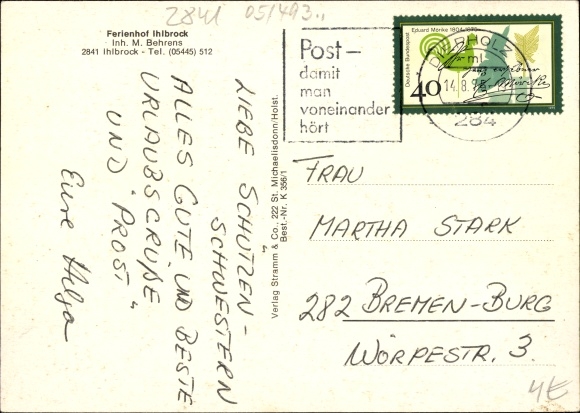 2841 05/493..
Ferienhof Ihlbrock
Inh. M. Behrens
2841 Ihlbrock - Tel. (05445) 512
LIEBE SCHÜTZEN-
SCHWESTERN
ALLES GUTE UND BESTE
URLAUBSGRÜßE
UND "PROST"
Eure Helga
Verlag Stramm & Co., 222 St. Michaelisdonn/Holst.
Best.-Nr. K 356/1
Post-
damit
man
voneinander
hört
Deutsche Bundespost
Eduard Mörike 1804-1875
40
DIEPHOLZ
14.8.75
284
FRAU
MARTHA STARK
282 BREMEN-BURG
WÖRPESTR. 3.
4€